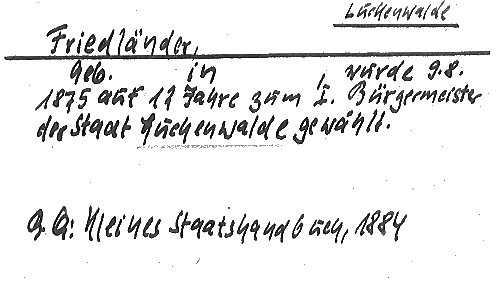 Luckenwalde
Friedländer,
geb. in , wurde 9.8.
1875 auf 12 Jahre zum I. Bürgermeister
der Stadt Luckenwalde gewählt.
G.Q.: Kleines Staatshandbuch, 1884